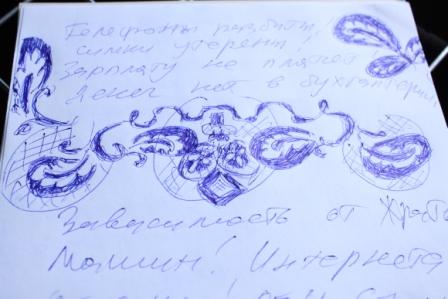 Телефоны разбиты!
симки утерены!
Зарплату не платят
Денег нет в бухгалтерии
Зависимость от
Машин! Интернета